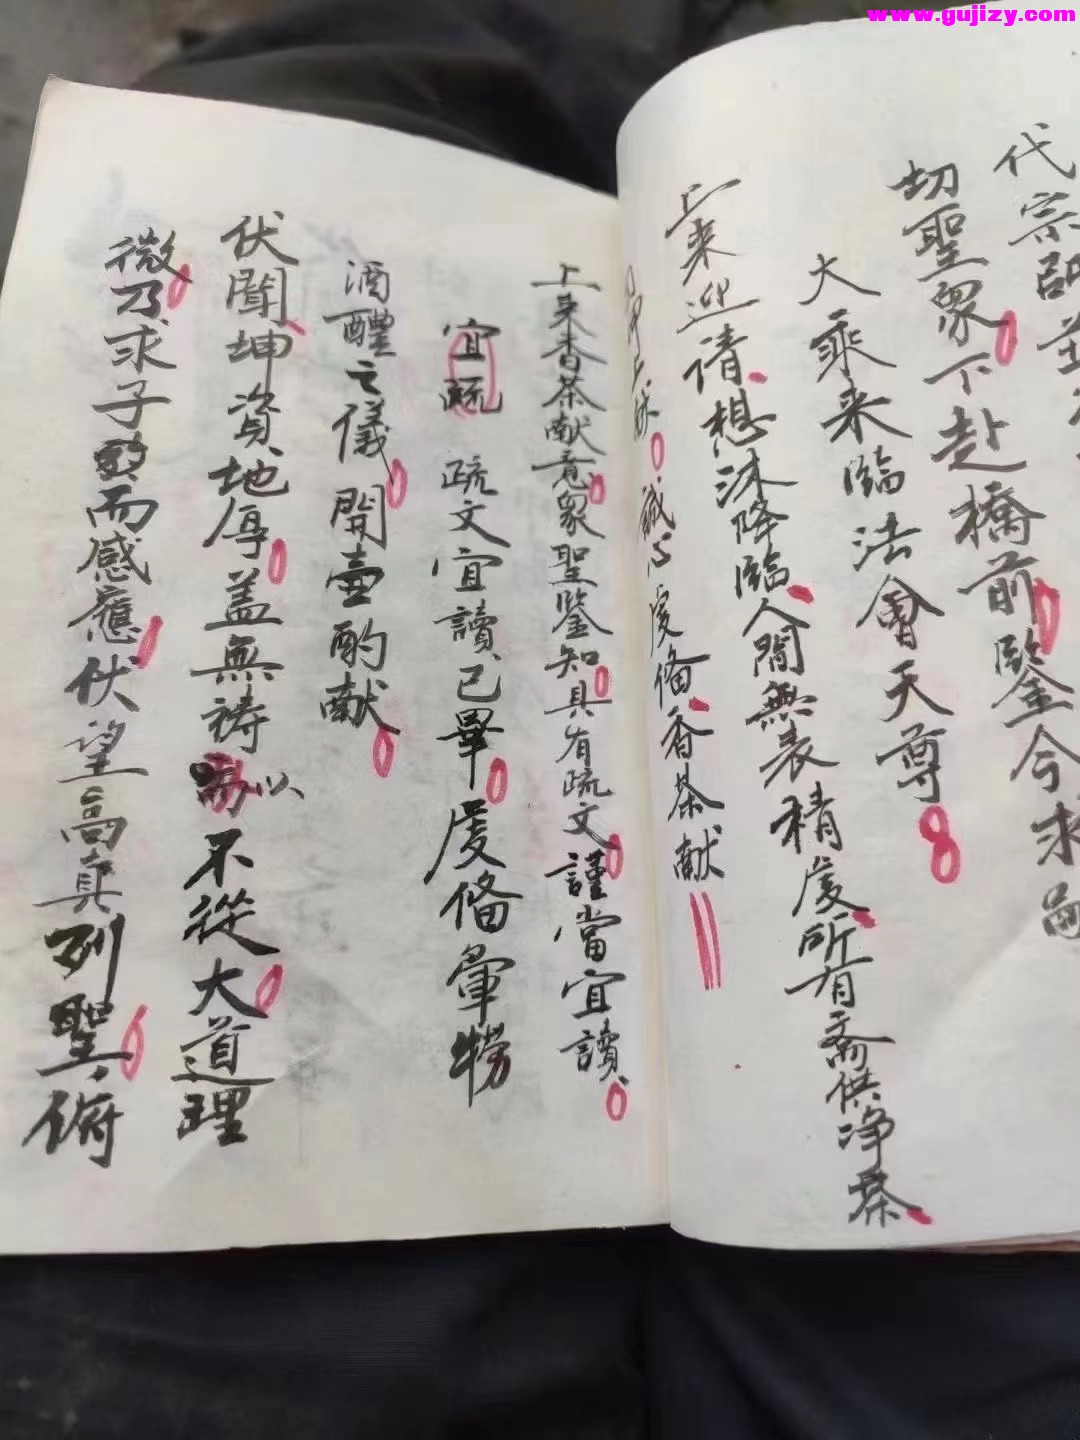 www.gujizy.com
代宗師
切聖眾下赴橋前鑒今求嗣
大乘来臨法會天尊
上来迎请想沐降臨人間無表精虔所有斋供净茶
上献誠心虔備香茶献
上来香茶献意眾聖鉴知具有疏文謹當宣讀
宣疏 疏文宣讀已畢虔俻彙
酒醴之儀開壺酌献
伏聞坤資地厚盖無禱以不從大道理
微乃求子而感應伏望高真列聖俯